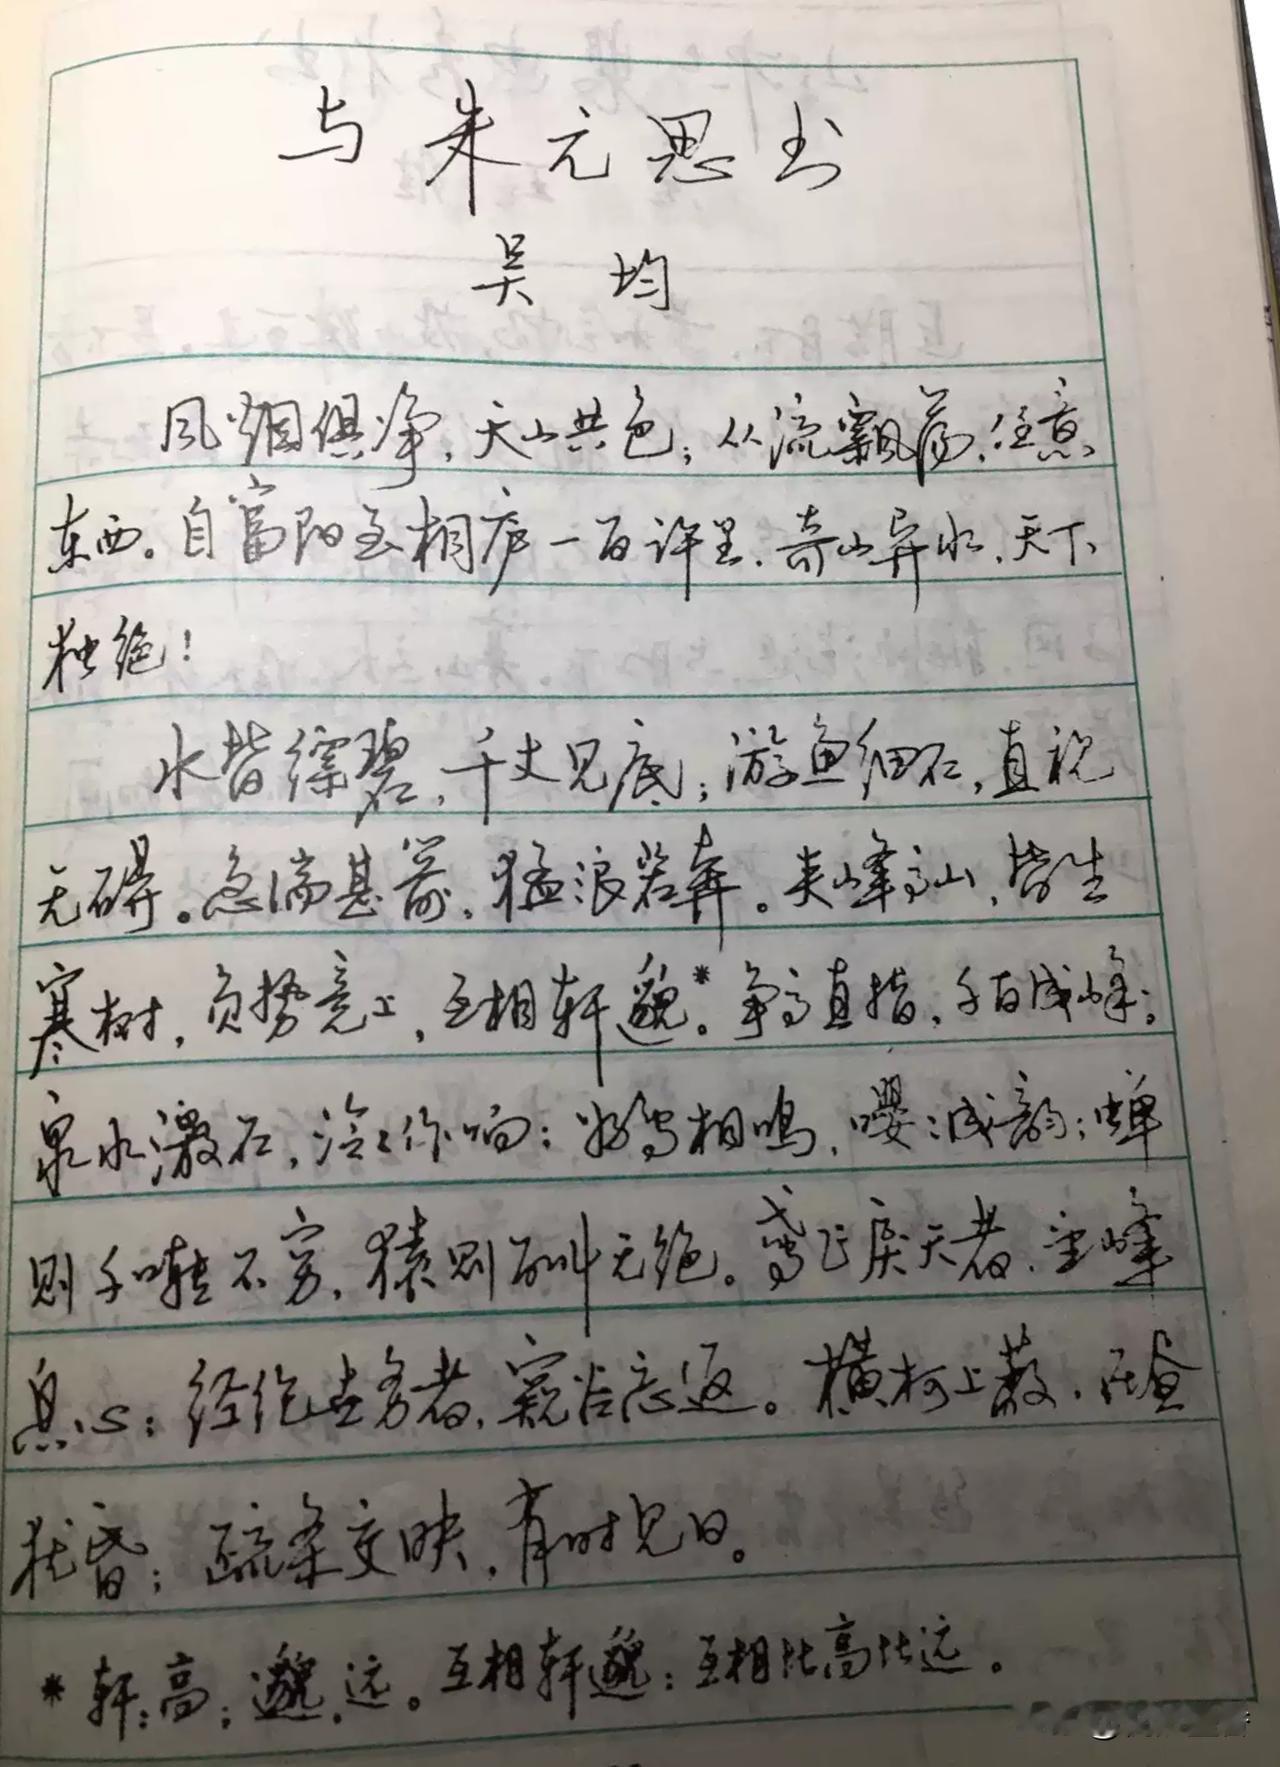 与朱元思书
吴均
风烟俱净，天山共色；从流飘荡，任意
东西。自富阳至桐庐一百许里，奇山异水，天下
独绝！
水皆缥碧，千丈见底；游鱼细石，直视
无碍。急湍甚箭，猛浪若奔。夹峰高山，皆生
寒树，负势竞上，互相轩邈*。争高直指，千百成峰；
泉水激石，泠泠作响；好鸟相鸣，嘤嘤成韵；蝉
则千啭不穷，猿则百叫无绝。鸢飞戾天者，望峰
息心；经纶世务者，窥谷忘返。横柯上蔽，在昼
犹昏；疏条交映，有时见日。
*轩：高；邈，远。互相轩邈：互相比高比远。